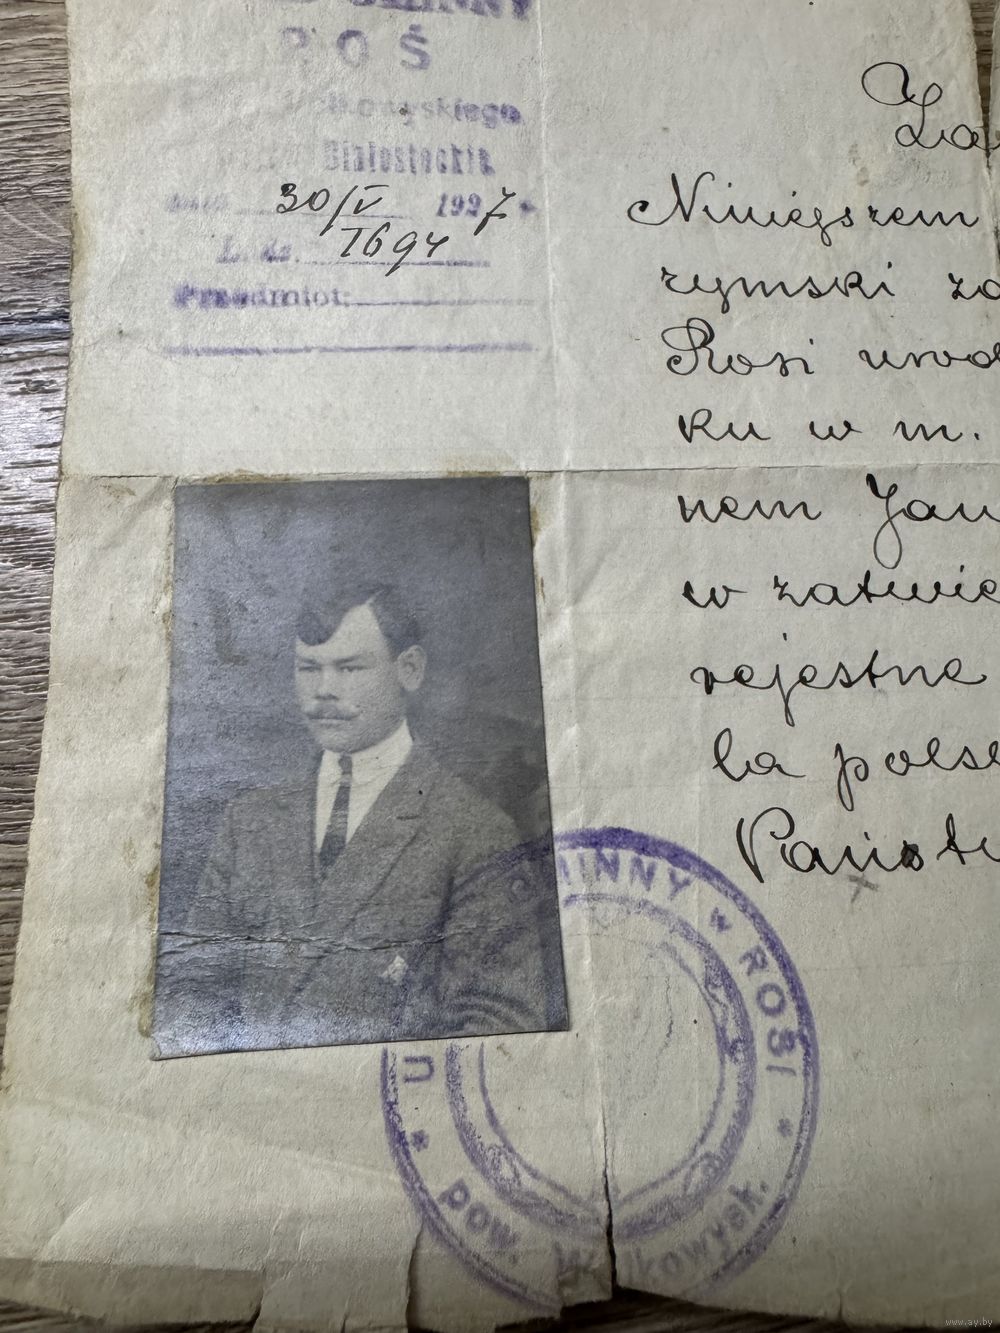 GMINNY
ROŚ
Wołkowyskiego
Białostockie
dnia 30/V 1927 r.
L. dz. 1694
Przedmiot:
Za
Niniejszem
rzymski za
Rosi urod
ku w m.
nem Jan
w zatwie
rejestrze
ła polsk
Państw
U GMINNY w ROSI
* pow. Wołkowysk. *
www.ay.by